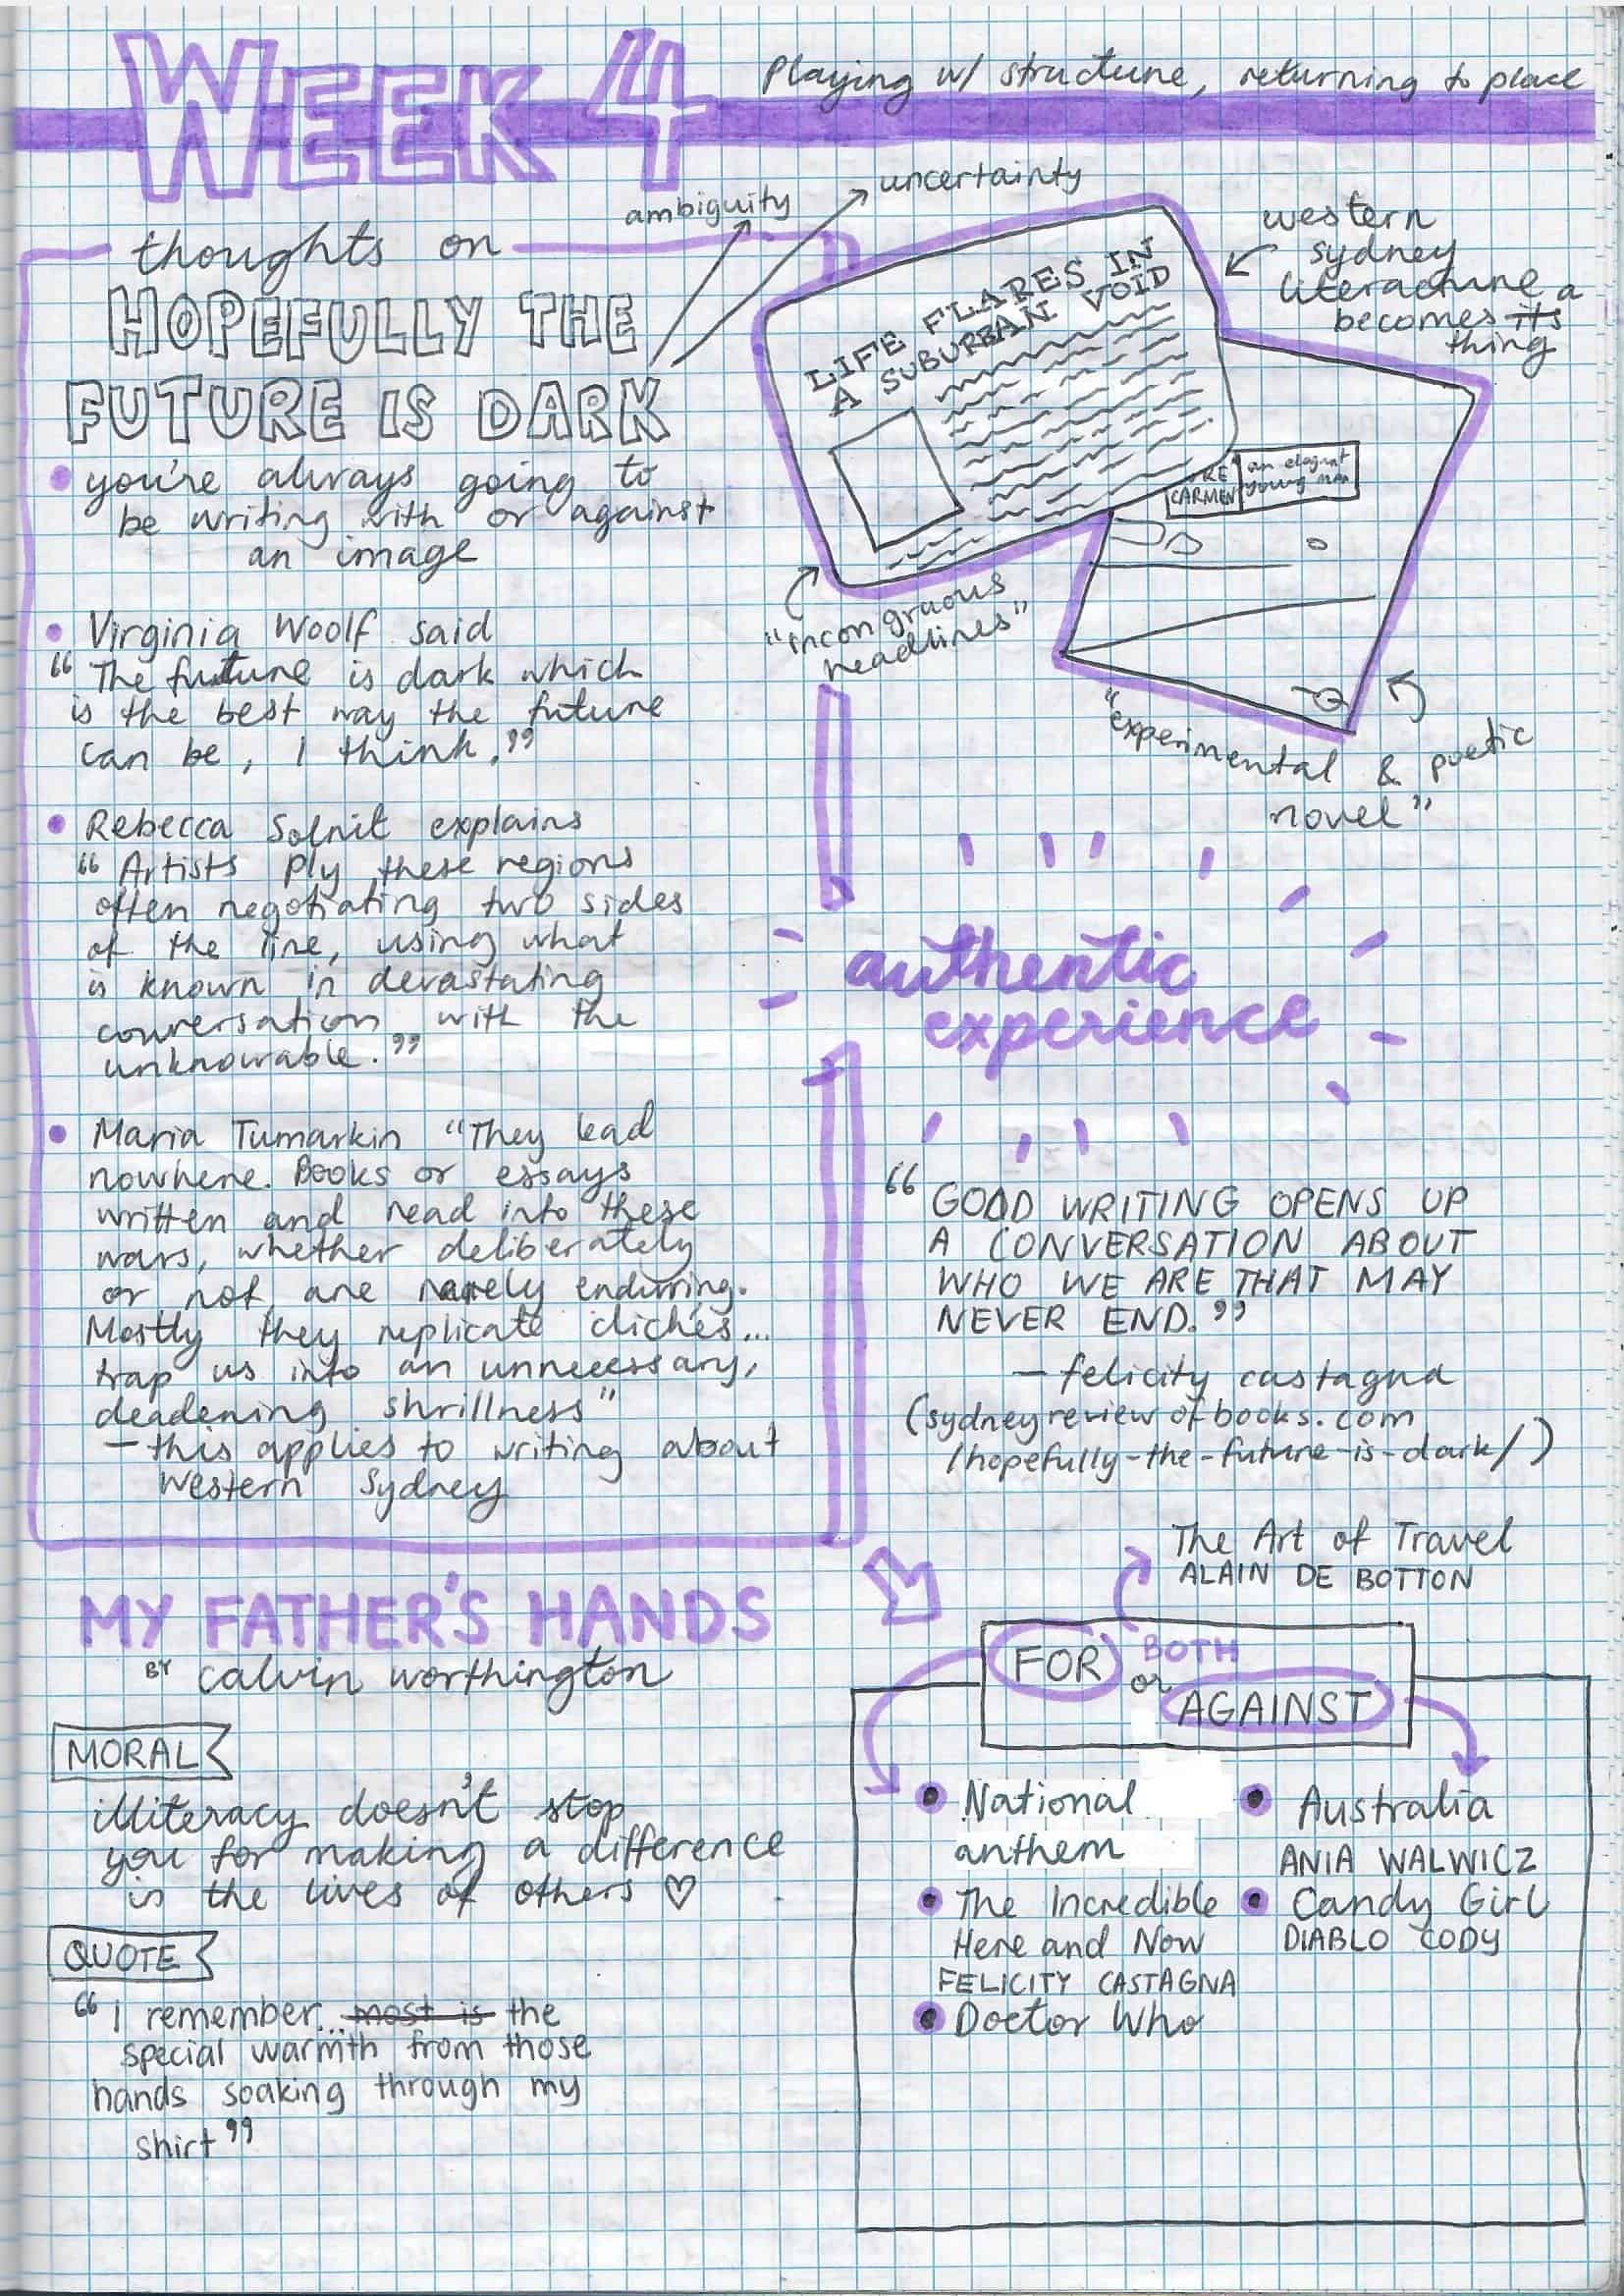 WEEK 4
Playing w/ structure, returning to place
ambiguity
uncertainty
thoughts on
HOPEFULLY THE
FUTURE IS DARK
• you're always going to
be writing with or against
an image
• Virginia Woolf said
"The future is dark which
is the best way the future
can be, I think."
• Rebecca Solnit explains
"Artists ply these regions
often negotiating two sides
of the line, using what
is known in devastating
conversation with the
unknowable."
• Maria Tumarkin "They lead
nowhere. Books or essays
written and read into these
wars, whether deliberately
or not, are rarely enduring.
Mostly they replicate clichés...
trap us into an unnecessary,
deadening shrillness"
— this applies to writing about
Western Sydney
LIFE FLARES IN
A SUBURBAN VOID
western
sydney
literature
becomes its a
thing
LUKE
CARMEN
an elegant
young man
"incongruous
headlines"
"experimental & poetic
novel"
authentic
experience
"GOOD WRITING OPENS UP
A CONVERSATION ABOUT
WHO WE ARE THAT MAY
NEVER END."
— felicity castagna
(sydneyreviewofbooks.com
/hopefully-the-future-is-dark/)
MY FATHER'S HANDS
BY calvin worthington
MORAL
illiteracy doesn't stop
you for making a difference
in the lives of others ♡
QUOTE
"I remember... most is the
special warmth from those
hands soaking through my
shirt"
The Art of Travel
ALAIN DE BOTTON
FOR BOTH
or
AGAINST
• National
anthem
• The Incredible
Here and Now
FELICITY CASTAGNA
• Doctor Who
• Australia
ANIA WALWICZ
• Candy Girl
DIABLO CODY